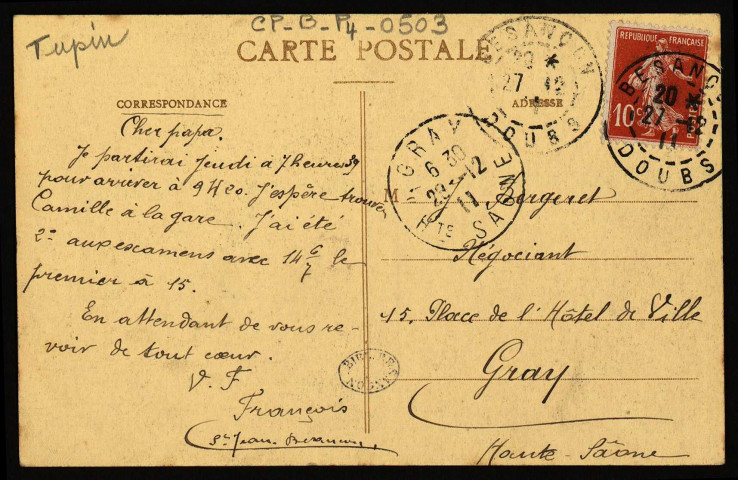 Tupin
CP-B-P4-0503
CARTE POSTALE
CORRESPONDANCE
Cher papa.
Je partirai jeudi à 7 heures 39
pour arriver à 9H20. J'espère trouver
Camille à la gare. J'ai été
2e aux examens avec 14 6/7 le
premier a 15.
En attendant de vous re-
voir de tout cœur.
V. F
François
St Jean. Besançon
ADRESSE
M J. Bergeret
Négociant
15, Place de l'Hôtel de Ville
Gray
Haute-Sâone
BESANÇON
20 *
27 - 12
11
DOUBS
REPUBLIQUE FRANÇAISE
10c
POSTES
BESANÇON
20 *
27 - 12
11
DOUBS
GRAY
6 30
28 - 12
11
HTE SAÔNE